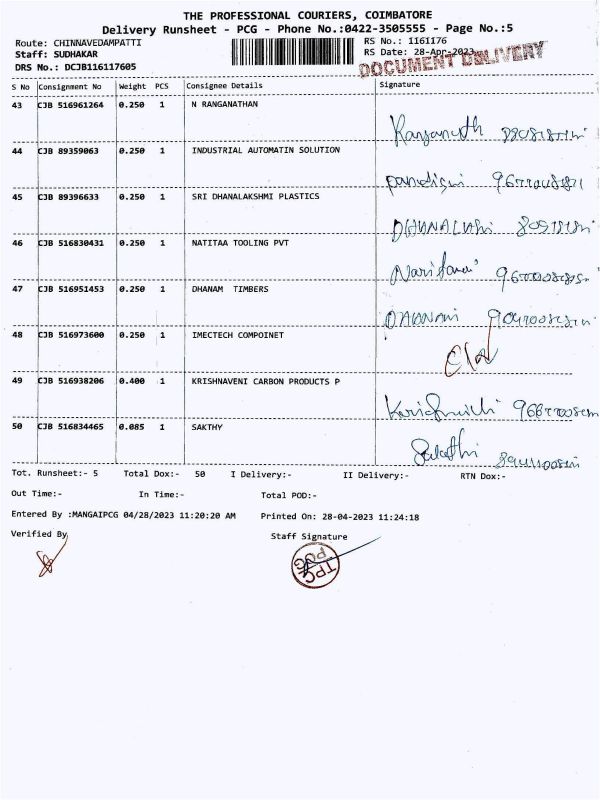 THE PROFESSIONAL COURIERS, COIMBATORE
Delivery Runsheet - PCG - Phone No.:0422-3505555 - Page No.:5
Route: CHINNAVEDAMPATTI
RS No.: 1161176
Staff: SUDHAKAR
RS Date: 28-Apr-2023
DRS No.: DCJB116117605
DOCUMENT DELIVERY
S No Consignment No Weight PCS Consignee Details Signature
43 CJB 516961264 0.250 1 N RANGANATHAN
Ranganath
44 CJB 89359063 0.250 1 INDUSTRIAL AUTOMATIN SOLUTION
45 CJB 89396633 0.250 1 SRI DHANALAKSHMI PLASTICS
46 CJB 516830431 0.250 1 NATITAA TOOLING PVT
47 CJB 516951453 0.250 1 DHANAM TIMBERS
48 CJB 516973600 0.250 1 IMECTECH COMPOINET
49 CJB 516938206 0.400 1 KRISHNAVENI CARBON PRODUCTS P
50 CJB 516834465 0.085 1 SAKTHY
Sakthi
Tot. Runsheet:- 5 Total Dox:- 50 I Delivery:- II Delivery:- RTN Dox:-
Out Time:- In Time:- Total POD:-
Entered By :MANGAIPCG 04/28/2023 11:20:20 AM Printed On: 28-04-2023 11:24:18
Verified By Staff Signature
TPC
PCG